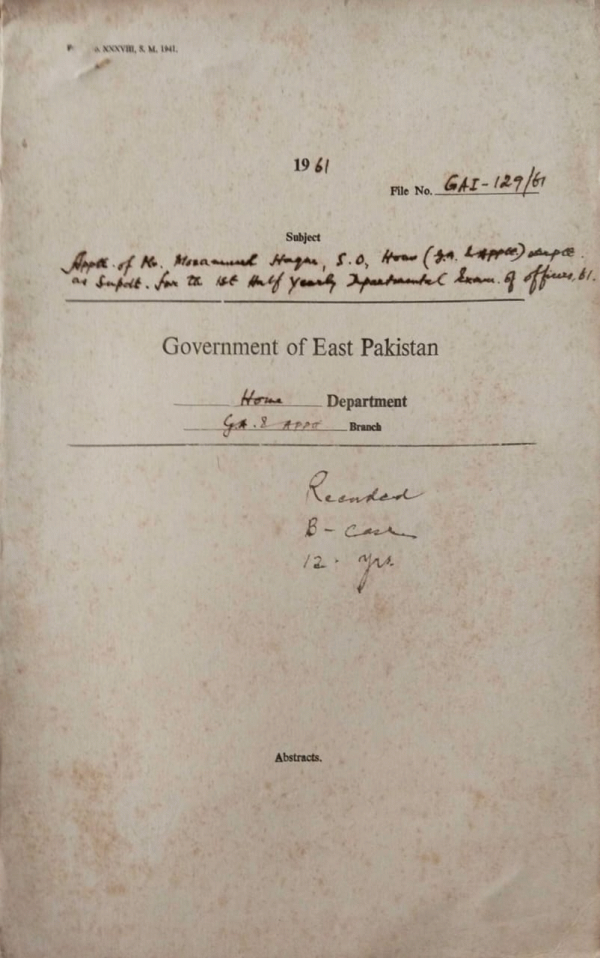 XXXVIII, S. M. 1941.
1961
File No. GAI-129/61
Subject
Apptt. of Mr. Hoque, S.O, Home (GA. & Apptt)
as Supdt. for the 1st Half Yearly Departmental Exam. of officers, 61.
Government of East Pakistan
Home Department
GA. & Branch
Recorded
B- case
12. yrs.
Abstracts.